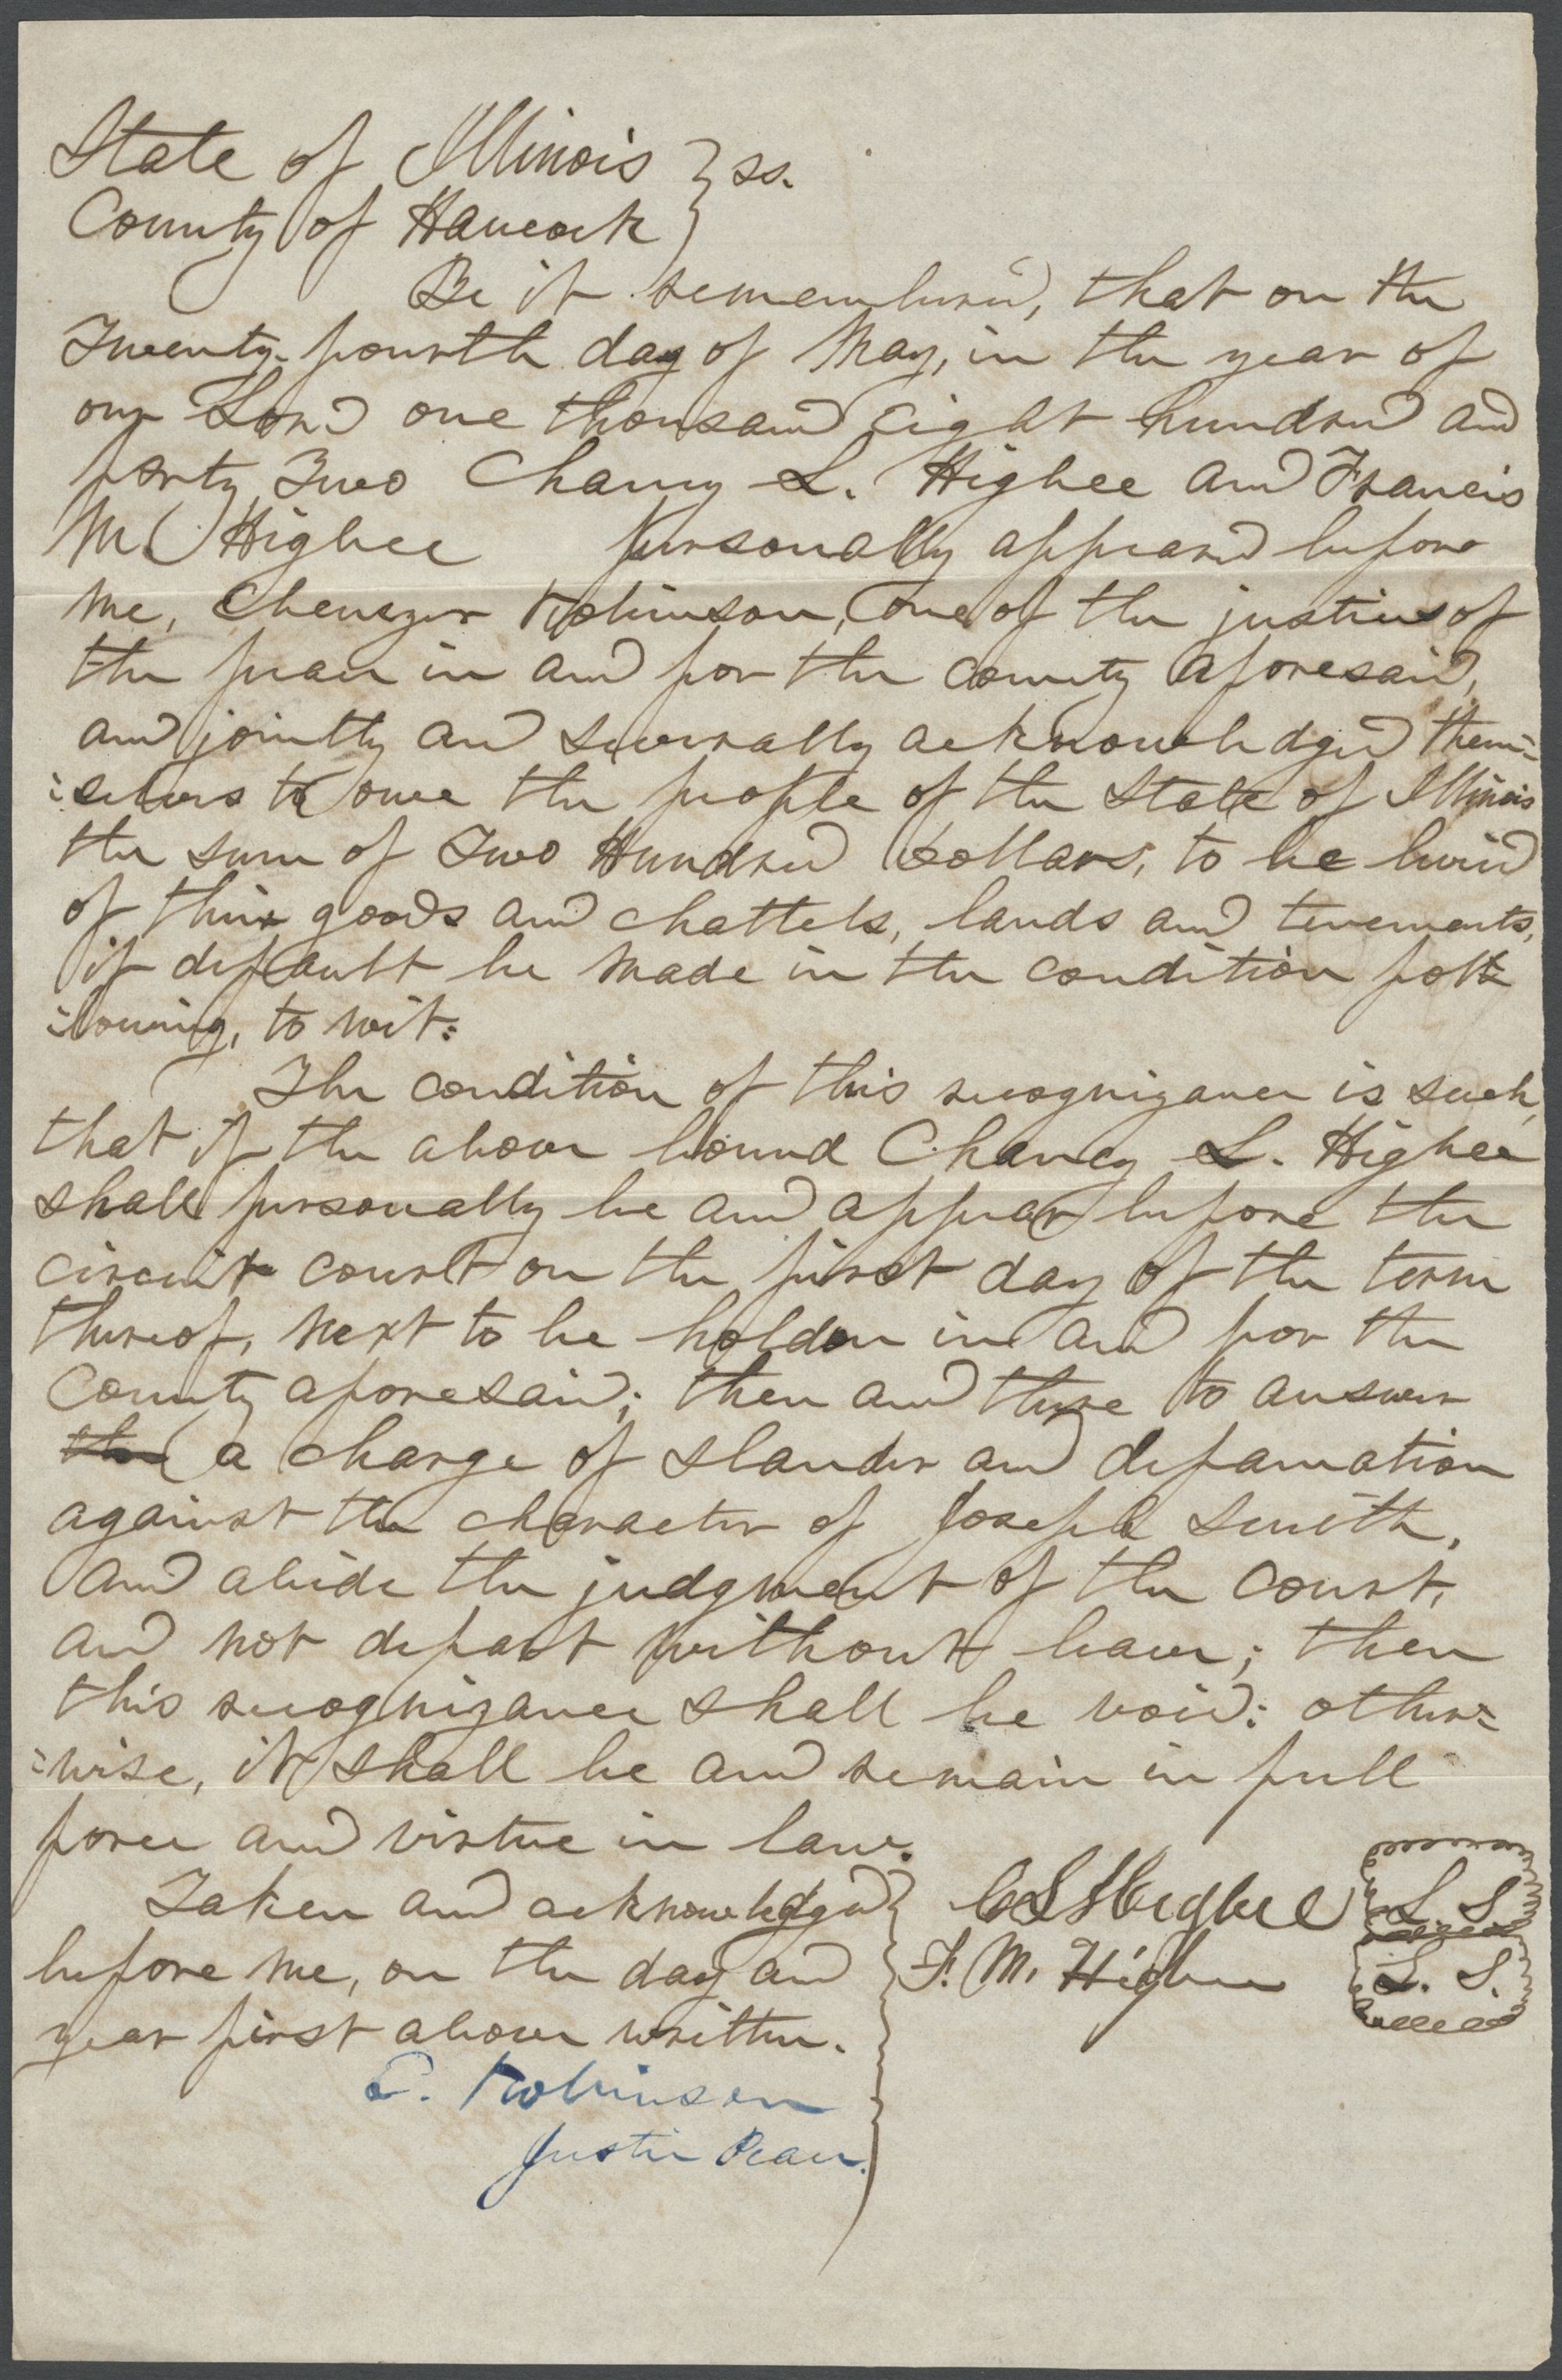 State of Illinois } ss.
County of Hancock }
Be it remembered, that on the
Twenty-fourth day of May, in the year of
our Lord one thousand eight hundred and
forty Two Chancy L. Higbee and Francis
M. Higbee personally appeared before
me, Ebenezer Robinson, one of the justices of
the peace in and for the county aforesaid,
and jointly and severally acknowledged them=
=selves to owe the people of the State of Illinois
the sum of Two Hundred Dollars, to be levied
of their goods and chattels, lands and tenements,
if default be made in the condition fol=
=lowing, to wit:
The condition of this recognizance is such,
that if the above bound Chancy L. Higbee
shall personally be and appear before the
circuit court on the first day of the term
thereof, next to be holden in and for the
County aforesaid; then and there to answer
the a charge of slander and defamation
against the character of Joseph Smith,
and abide the judgment of the court,
and not depart without leave; then
this recognizance shall be void: other=
=wise, it shall be and remain in full
force and virtue in law.
Taken and acknowledged } C L Higbee L S
before me, on the day and } F. M. Higbee L. S.
year first above written.
E. Robinson
Justice Peace.